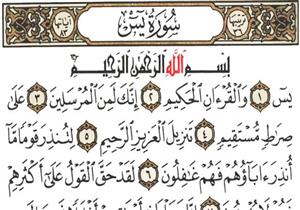 سُورَةُ يسٓ
بِسْمِ اللَّهِ الرَّحْمَٰنِ الرَّحِيمِ
يسٓ ١ وَالْقُرْءَانِ الْحَكِيمِ ٢ إِنَّكَ لَمِنَ الْمُرْسَلِينَ ٣ عَلَىٰ
صِرَٰطٍ مُّسْتَقِيمٍ ٤ تَنزِيلَ الْعَزِيزِ الرَّحِيمِ ٥ لِتُنذِرَ قَوْمًا مَّا
أُنذِرَ ءَابَآؤُهُمْ فَهُمْ غَٰفِلُونَ ٦ لَقَدْ حَقَّ الْقَوْلُ عَلَىٰٓ أَكْثَرِهِمْ